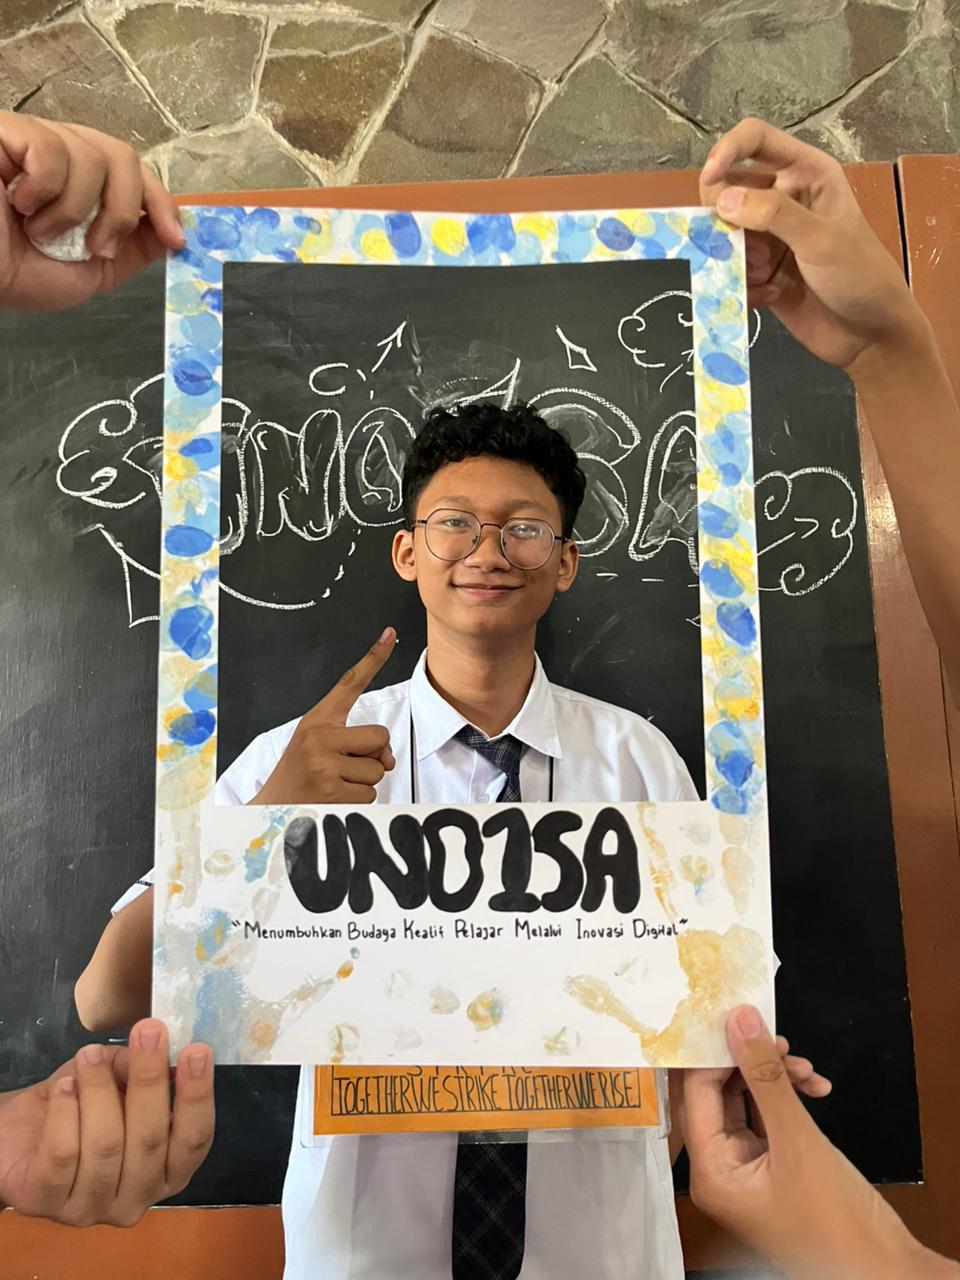 UNO1SA
"Menumbuhkan Budaya Kealif Pelajar Melalui Inovasi Digital"
TOGETHERWESTRIKE TOGETHERWERISE